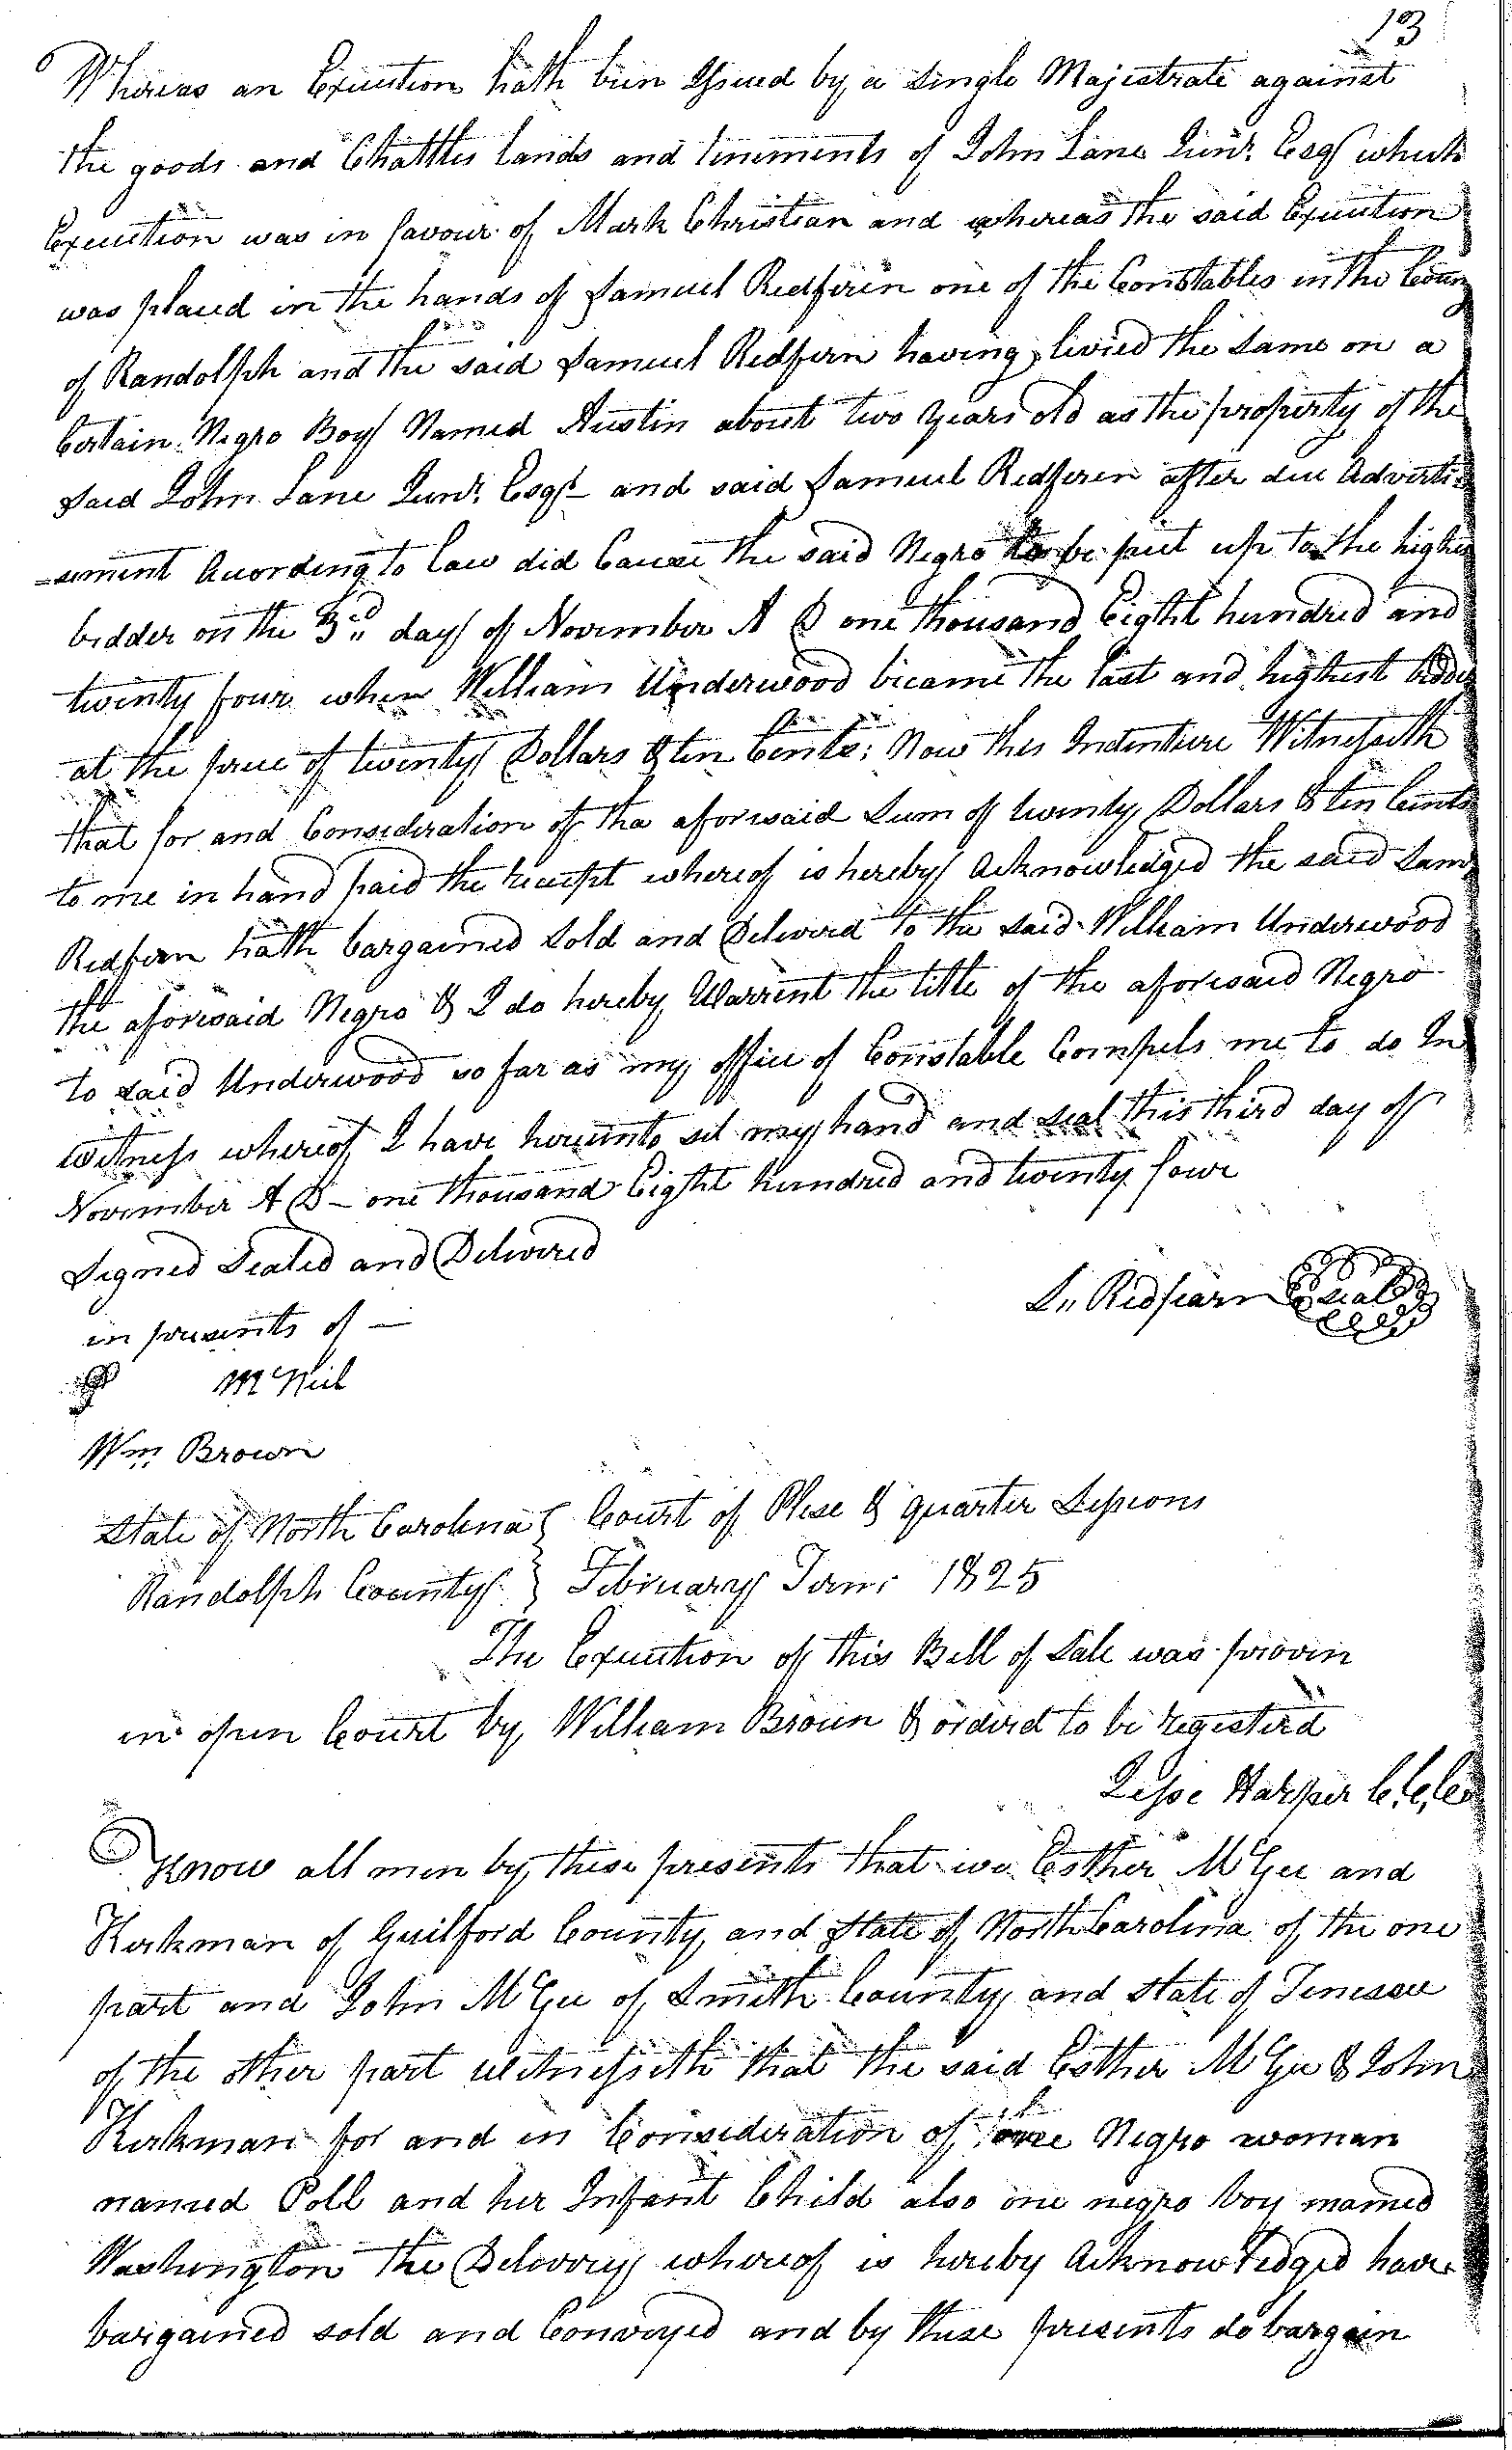 13
Whereas an Execution hath been Issued by a Single Majestrate against
the goods and Chattles lands and tinements of John Lane Junr. Esqr which
Execution was in favour of Mark Christian and whereas the said Execution
was placed in the hands of Samuel Redferen one of the Constables in the Coun
of Randolph and the said Samuel Redfern having levied the Same on a
Certain Negro Boy Named Austin about two years old as the property of the
Said John Lane Junr. Esqr and said Samuel Redferen after due Adverti-
-sement Acording to law did Cause the said Negro to be put up to the highes
bidder on the 3rd day of November A D one thousand Eight hundred and
twenty four when William Underwood became the last and highest bidder
at the price of twenty Dollars & ten Cents; Now this Indenture Witnesseth
that for and Consideration of the aforesaid Sum of twenty Dollars & ten Cents
to me in hand paid the receipt whereof is hereby Acknowledged the said Saml
Redfern hath bargained Sold and Deliverd to the said William Underwood
the aforesaid Negro & I do hereby Warrent the title of the aforesaid Negro
to said Underwood so far as my office of Constable Compels me to do In
witness whereof I have hereunto set my hand and seal this third day of
November A D - one thousand Eight hundred and twenty four
Signed Sealed and Delivered
S,, Redfearn seal
in presents of —
McNeil
Wm Brown
State of North Carolina { Court of Plese & quarter Sessions
Randolph County } February Term 1825
The Execution of this Bill of Sale was proven
in open Court by William Brown & orderd to be registerd
Jesse Harper C.C.C.
Know all men by these presents that we Esther McGee and
Kirkman of Guilford County and State of North Carolina of the one
part and John McGee of Smith County and State of Tenessee
of the other part witnesseth that the said Esther McGee & John
Kirkman for and in Consideration of one Negro woman
named Poll and her Infant Child also one negro boy named
Washington the Delivery whereof is hereby Acknowledged have
bargained sold and Conveyed and by these presents do bargain